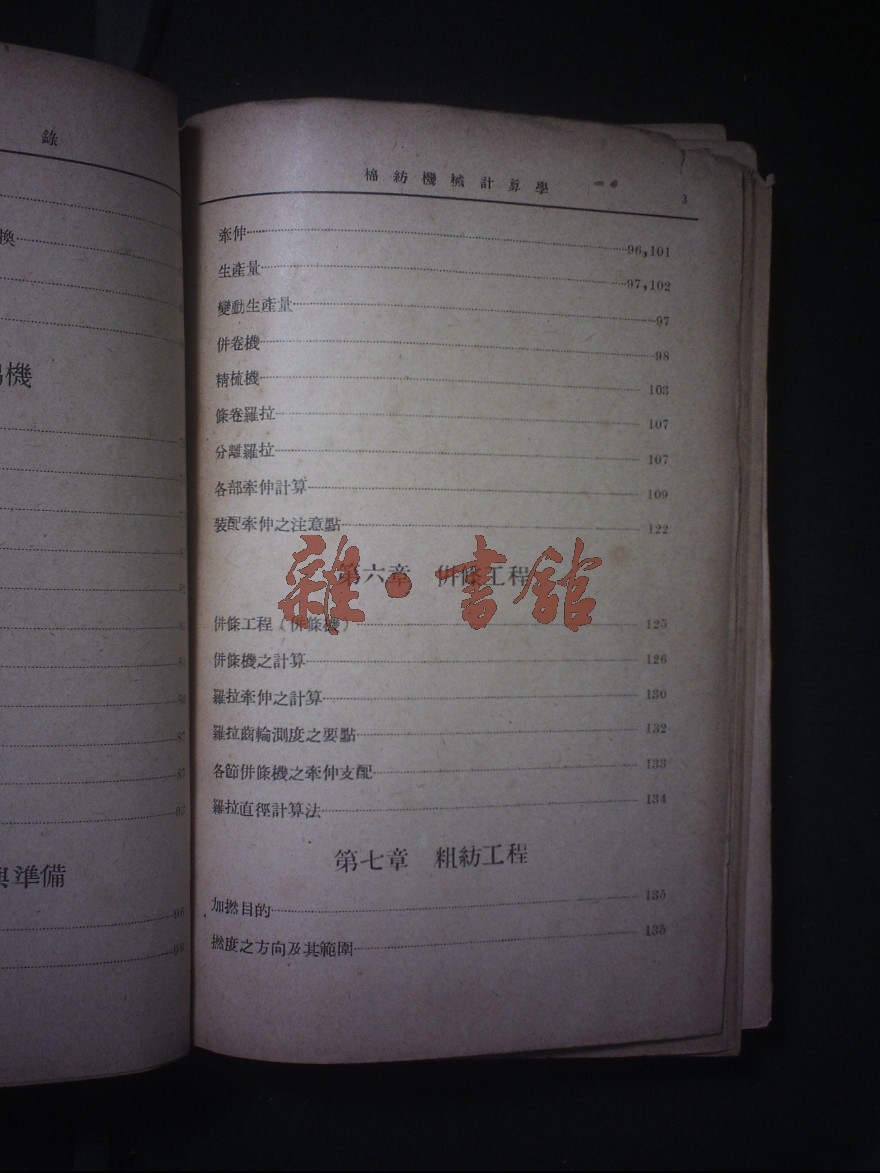 錄
換
機
96
準備
棉紡機械計算學 3
牽伸 96,101
生產量 97,102
變動生產量 97
併卷機 98
精梳機 103
條卷羅拉 107
分離羅拉 107
各部牽伸計算 109
裝配牽伸之注意點 122
第六章 併條工程
雜·書館
併條工程(併條機) 125
併條機之計算 126
羅拉牽伸之計算 130
羅拉齒輪測度之要點 132
各節併條機之牽伸支配 133
羅拉直徑計算法 134
第七章 粗紡工程
加撚目的 135
撚度之方向及其範圍 135